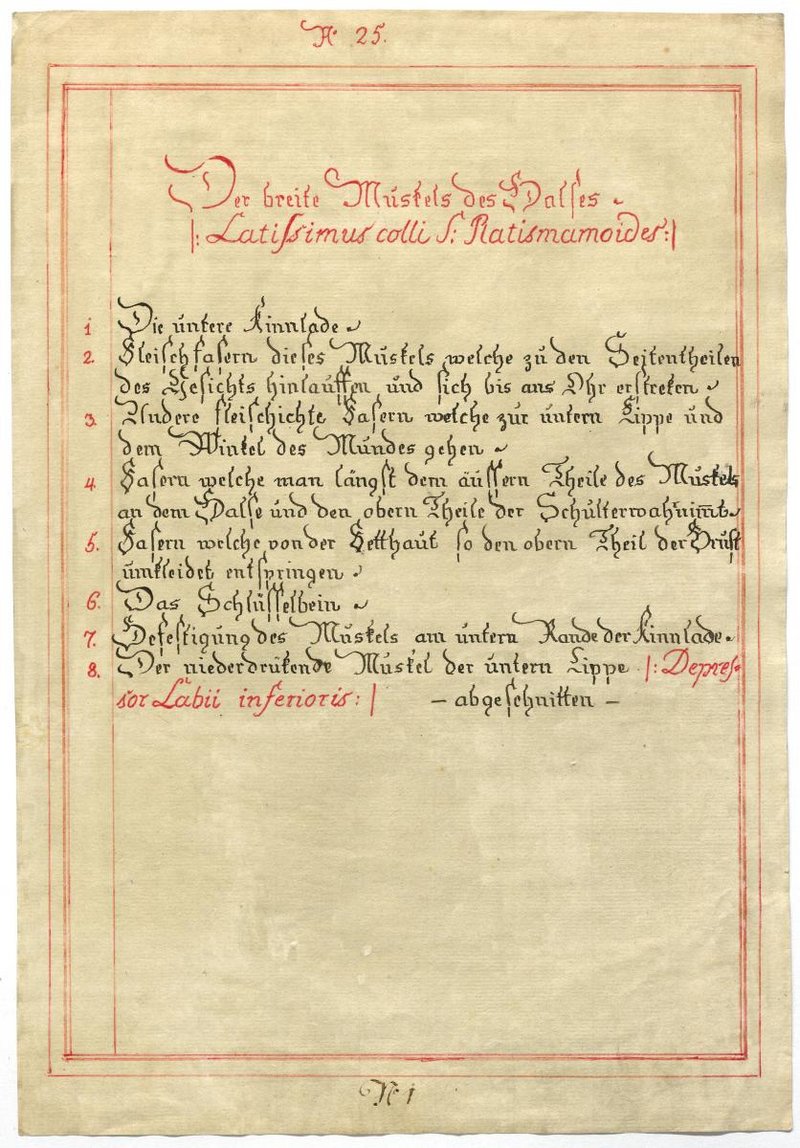 N° 25.
Der breite Muskels des Halses
|: Latissimus colli S: Platismamoides :|
1 Die untere Kinnlade
2. Fleischfasern dieses Muskels welche zu den Seitentheilen
des Gesichts hinlauffen und sich bis ans Ohr erstreken
3. Andere fleischichte Fasern welche zur untern Lippe und
dem Winkel des Mundes gehen
4 Fasern welche man längst dem äussern Theile des Muskels
an dem Halse und den obern Theile der Schulterwahrnim̅t
5. Fasern welche von der Fetthaut so den obern Theil der Brust
umkleidet entspringen
6. Das Schlüsselbein
7. Befestigung des Muskels am untern Rande der Kinnlade
8. Der niederdrukende Muskel der untern Lippe |: Depres-
sor Labii inferioris: | – abgeschnitten –
N° 1